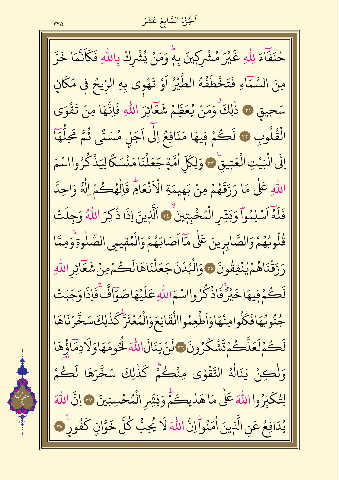 اَلْجُزْءُ السَّابِعَ عَشَرَ
٣٣٥
حُنَفَٓاءَ لِلّٰهِ غَيْرَ مُشْرِك۪ينَ بِه۪ۜ وَمَنْ يُشْرِكْ بِاللّٰهِ فَكَاَنَّمَا خَرَّ
مِنَ السَّمَٓاءِ فَتَخْطَفُهُ الطَّيْرُ اَوْ تَهْو۪ي بِهِ الرّ۪يحُ ف۪ي مَكَانٍ
سَح۪يقٍ ﴿٣١﴾ ذٰلِكَۗ وَمَنْ يُعَظِّمْ شَعَٓائِرَ اللّٰهِ فَاِنَّهَا مِنْ تَقْوَى
الْقُلُوبِ ﴿٣٢﴾ لَكُمْ ف۪يهَا مَنَافِعُ اِلٰٓى اَجَلٍ مُسَمًّى ثُمَّ مَحِلُّهَٓا
اِلَى الْبَيْتِ الْعَت۪يقِ۟ ﴿٣٣﴾ وَلِكُلِّ اُمَّةٍ جَعَلْنَا مَنْسَكًا لِيَذْكُرُوا اسْمَ
اللّٰهِ عَلٰى مَا رَزَقَهُمْ مِنْ بَه۪يمَةِ الْاَنْعَامِۜ فَاِلٰهُكُمْ اِلٰهٌ وَاحِدٌ
فَلَهُٓ اَسْلِمُواۜ وَبَشِّرِ الْمُخْبِت۪ينَۙ ﴿٣٤﴾ اَلَّذ۪ينَ اِذَا ذُكِرَ اللّٰهُ وَجِلَتْ
قُلُوبُهُمْ وَالصَّابِر۪ينَ عَلٰى مَٓا اَصَابَهُمْ وَالْمُق۪يمِي الصَّلٰوةِۙ وَمِمَّا
رَزَقْنَاهُمْ يُنْفِقُونَ ﴿٣٥﴾ وَالْبُدْنَ جَعَلْنَاهَا لَكُمْ مِنْ شَعَٓائِرِ اللّٰهِ
لَكُمْ ف۪يهَا خَيْرٌۗ فَاذْكُرُوا اسْمَ اللّٰهِ عَلَيْهَا صَوَٓافَّۚ فَاِذَا وَجَبَتْ
جُنُوبُهَا فَكُلُوا مِنْهَا وَاَطْعِمُوا الْقَانِعَ وَالْمُعْتَرَّۜ كَذٰلِكَ سَخَّرْنَاهَا
لَكُمْ لَعَلَّكُمْ تَشْكُرُونَ ﴿٣٦﴾ لَنْ يَنَالَ اللّٰهَ لُحُومُهَا وَلَا دِمَٓاؤُ۬هَا
وَلٰكِنْ يَنَالُهُ التَّقْوٰى مِنْكُمْۜ كَذٰلِكَ سَخَّرَهَا لَكُمْ
لِتُكَبِّرُوا اللّٰهَ عَلٰى مَا هَدٰيكُمْۜ وَبَشِّرِ الْمُحْسِن۪ينَ ﴿٣٧﴾ اِنَّ اللّٰهَ
يُدَافِعُ عَنِ الَّذ۪ينَ اٰمَنُواۜ اِنَّ اللّٰهَ لَا يُحِبُّ كُلَّ خَوَّانٍ كَفُورٍ۟ ﴿٣٨﴾